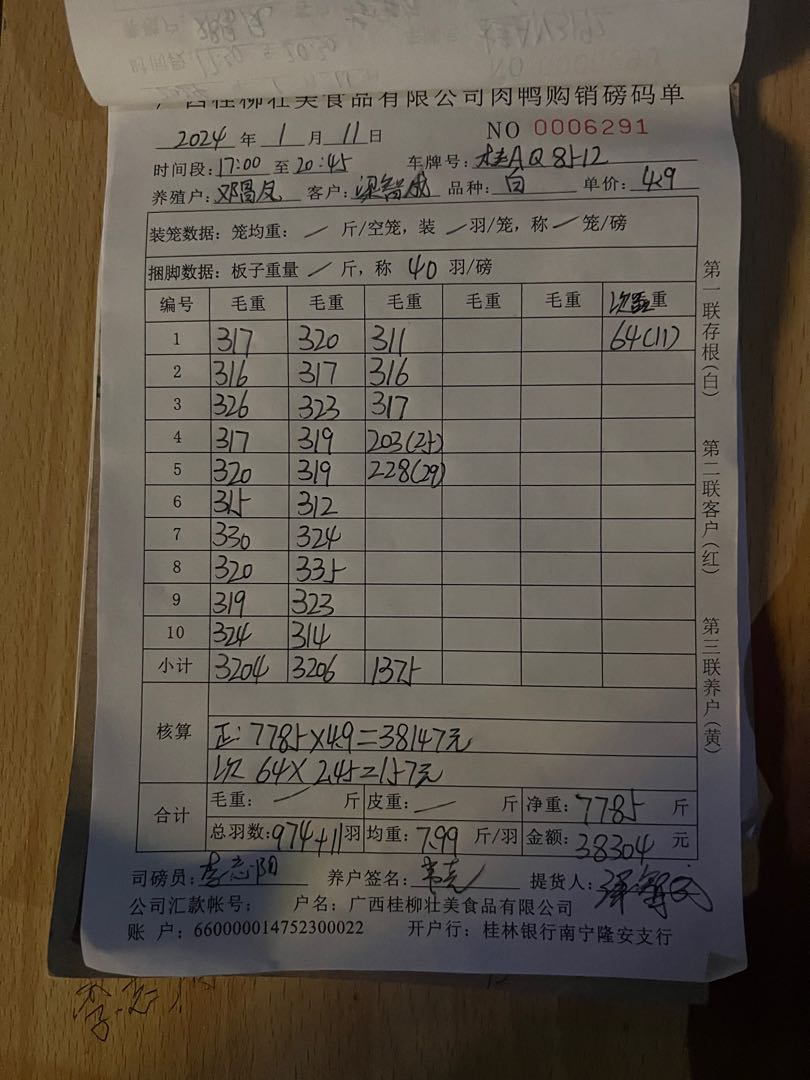 广西桂柳壮美食品有限公司肉鸭购销磅码单
2024 年 1 月 11 日 NO 0006291
时间段: 17:00 至 20:45 车牌号: 桂AQ8512
养殖户: 邓昌凤 客户: 梁智成 品种: 白 单价: 4.9
装笼数据: 笼均重: / 斤/空笼, 装 / 羽/笼, 称 / 笼/磅
捆脚数据: 板子重量 / 斤, 称 40 羽/磅
编号 毛重 毛重 毛重 毛重 毛重 次 重
1 317 320 311 64(11)
2 316 317 316
3 326 323 317
4 317 319 203(25)
5 320 319 228(29)
6 315 312
7 330 324
8 320 335
9 319 323
10 324 314
小计 3204 3206 1375
核算
正: 7785×4.9=38147元
次 64×2.45=157元
合计
毛重: / 斤 皮重: / 斤 净重: 7785 斤
总羽数: 974+11 羽 均重: 7.99 斤/羽 金额: 38304 元
司磅员: 李志阳 养户签名: 提货人:
公司汇款帐号: 户名: 广西桂柳壮美食品有限公司
账 户: 660000014752300022 开户行: 桂林银行南宁隆安支行
第一联存根(白) 第二联客户(红) 第三联养户(黄)